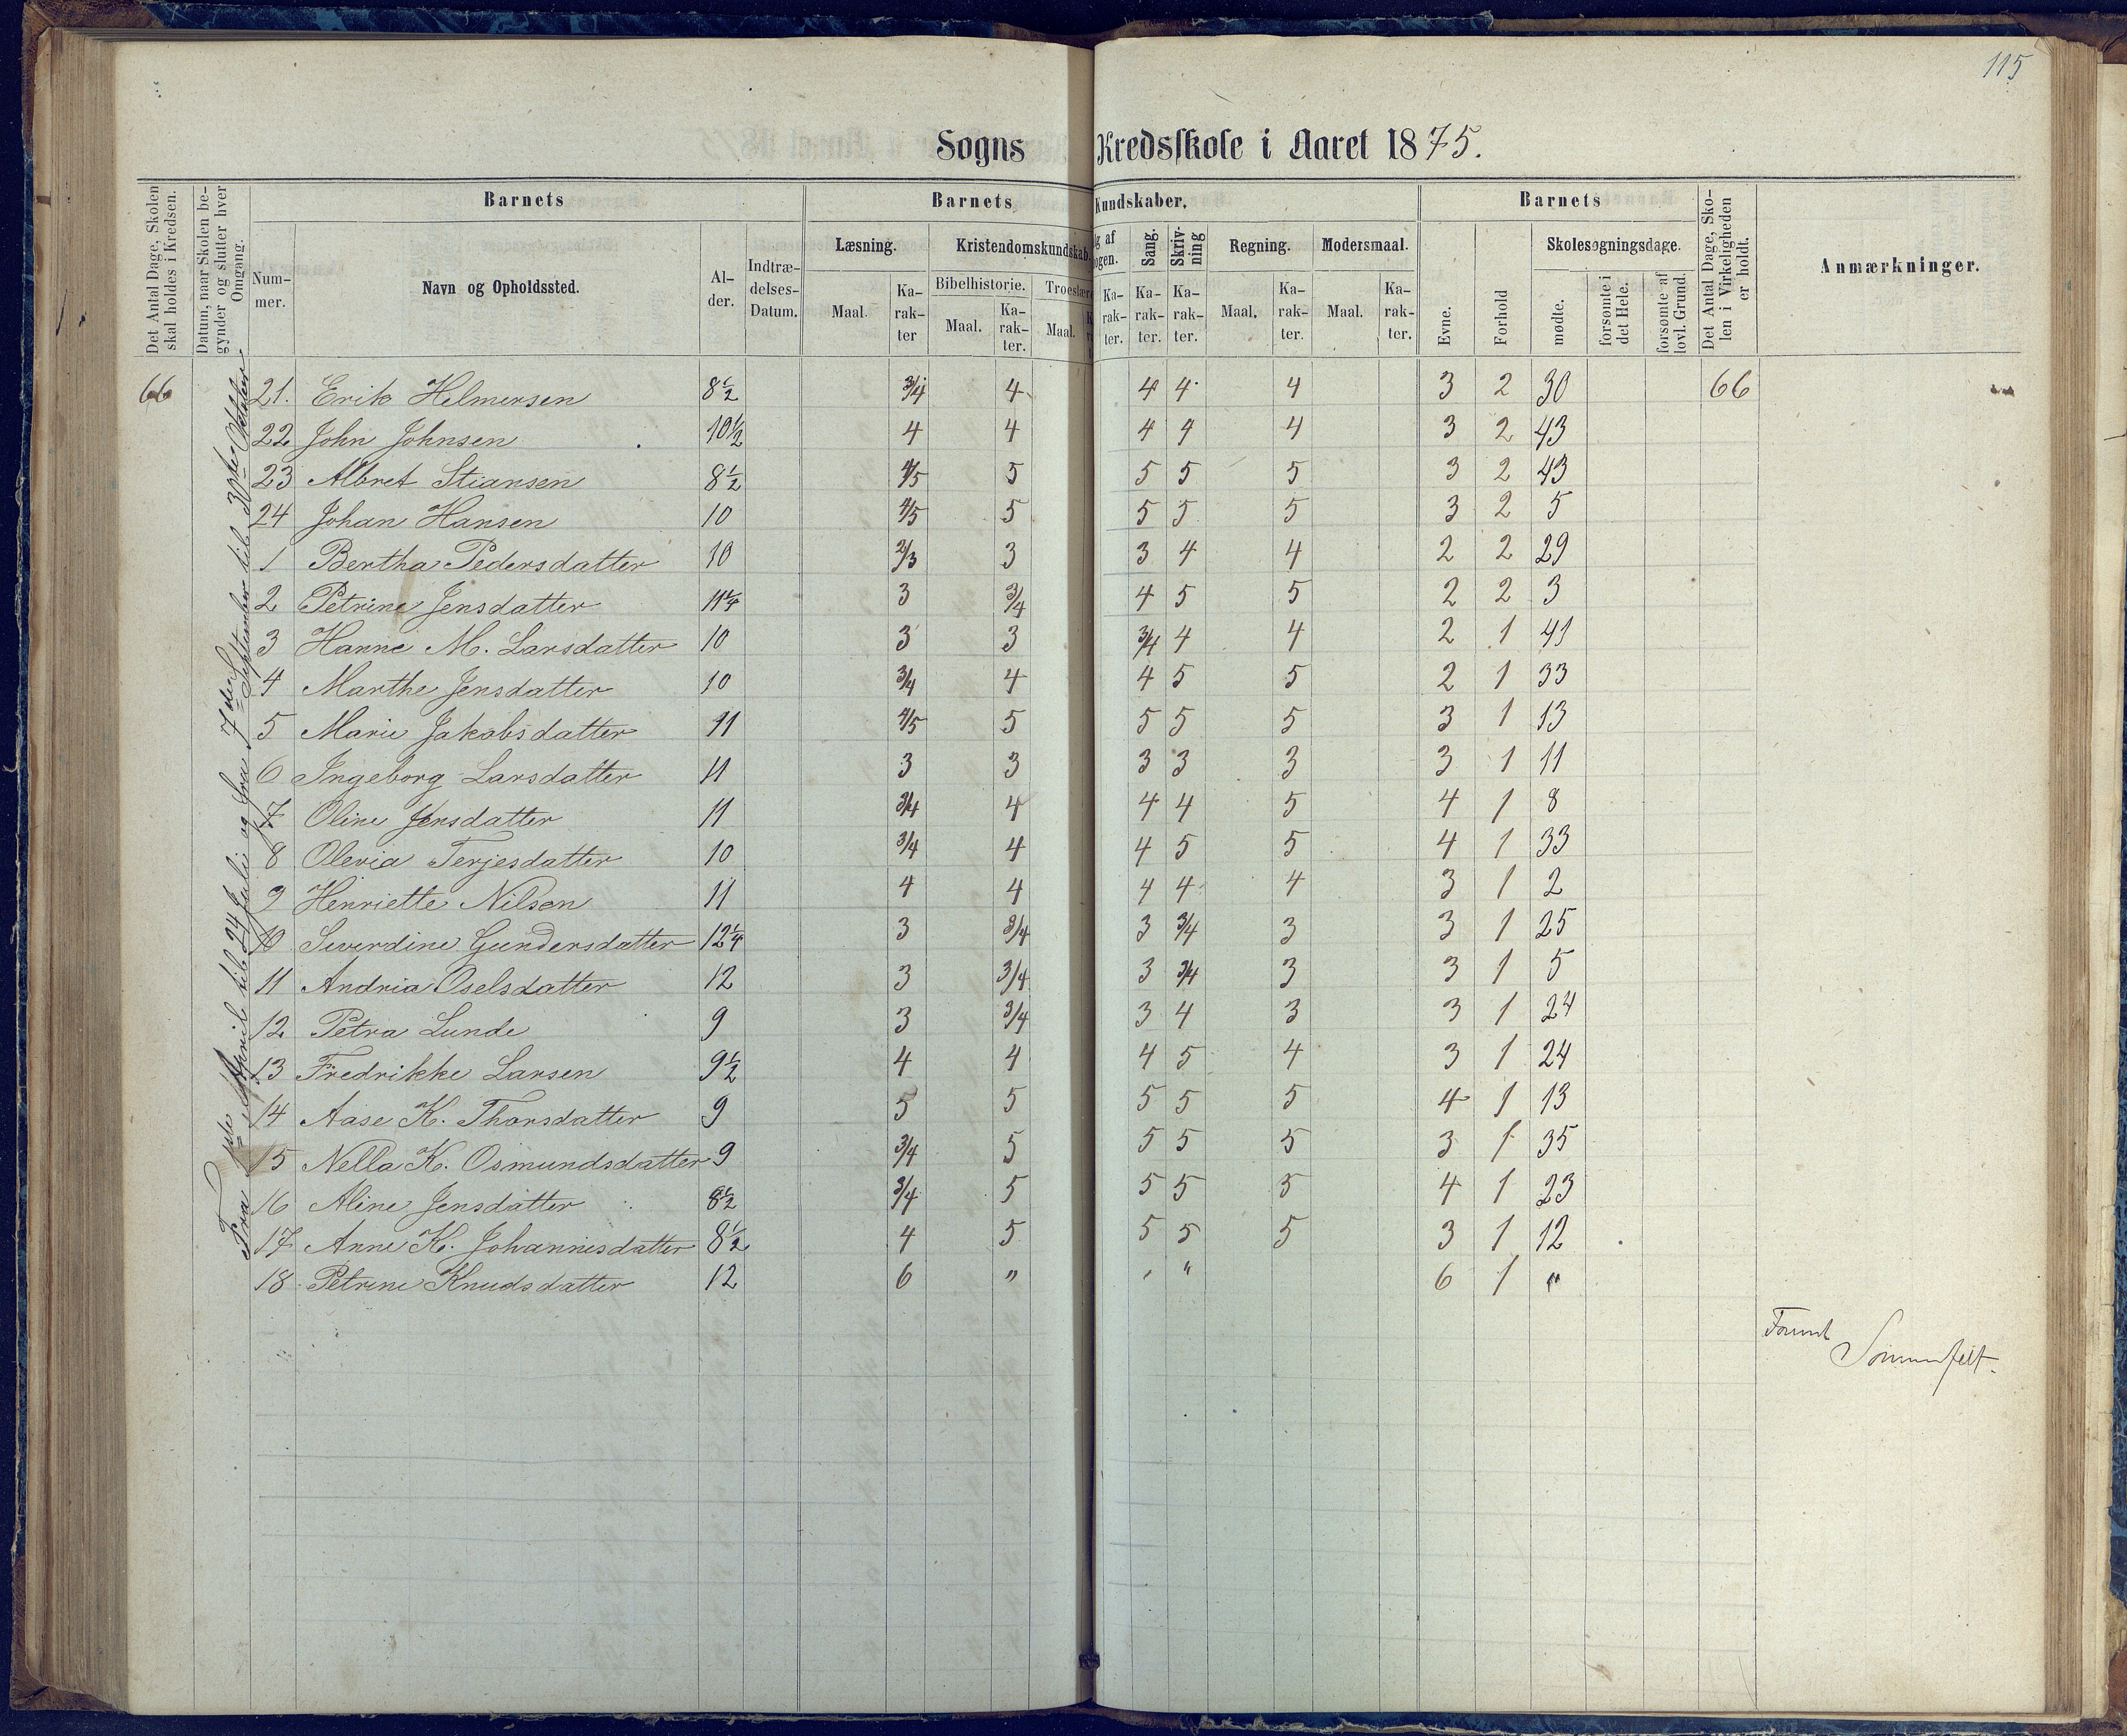 115
Sogns Kredsskole i Aaret 1875.
Det Antal Dage, Skolen skal holdes i Kredsen.
Datum, naar Skolen begynder og slutter hver Omgang.
Barnets
Nummer.
Navn og Opholdssted.
Alder.
Indtrædelses-Datum.
Barnets Kundskaber.
Læsning.
Maal.
Karakter
Kristendomskundskab.
Bibelhistorie.
Maal.
Karakter.
Troeslære
Maal.
og af
ogen.
Karakter.
Sang.
Karakter.
Skrivning
Karakter.
Regning.
Maal.
Karakter.
Modersmaal.
Maal.
Karakter.
Barnets
Evne.
Forhold
Skolesøgningsdage.
mødte.
forsømte i det Hele.
forsømte af lovl. Grund.
Det Antal Dage, Skolen i Virkeligheden er holdt.
Anmærkninger.
Fra 1ste April til 24 Juli og fra 7de September til 30te Oktober.
66 21. Erik Helmersen 8½ 3/4 4 4 4 4 3 2 30 66
22 John Johnsen 10½ 4 4 4 4 4 3 2 43
23 Albret Stiansen 8½ 4/5 5 5 5 5 3 2 43
24 Johan Hansen 10 4/5 5 5 5 5 3 2 5
1 Bertha Pedersdatter 10 2/3 3 3 4 4 2 2 29
2 Petrine Jensdatter 11¼ 3 3/4 4 5 5 2 2 3
3 Hanne M. Larsdatter 10 3 3 3/4 4 4 2 1 41
4 Marthe Jensdatter 10 3/4 4 4 5 5 2 1 33
5 Marie Jakobsdatter 11 4/5 5 5 5 5 3 1 13
6 Ingeborg Larsdatter 11 3 3 3 3 3 3 1 11
7 Oline Jensdatter 11 3/4 4 4 4 5 4 1 8
8 Olevia Terjesdatter 10 3/4 4 4 5 5 4 1 33
9 Henriette Nilsen 11 4 4 4 4 4 3 1 2
10 Severdine Gundersdatter 12¼ 3 3/4 3 3/4 3 3 1 25
11 Andria Oselsdatter 12 3 3/4 3 3/4 3 3 1 5
12 Petra Lunde 9 3 3/4 3 4 3 3 1 24
13 Fredrikke Larsen 9½ 4 4 4 5 4 3 1 24
14 Aase K. Thorsdatter 9 5 5 5 5 5 4 1 13
15 Nella K. Osmundsdatter 9 3/4 5 5 5 5 3 1 35
16 Aline Jensdatter 8½ 3/4 5 5 5 5 4 1 23
17 Anne K. Johannesdatter 8½ 4 5 5 5 5 3 1 12
18 Petrine Knudsdatter 12 6 " " " 6 1 "
Sommerfelt.